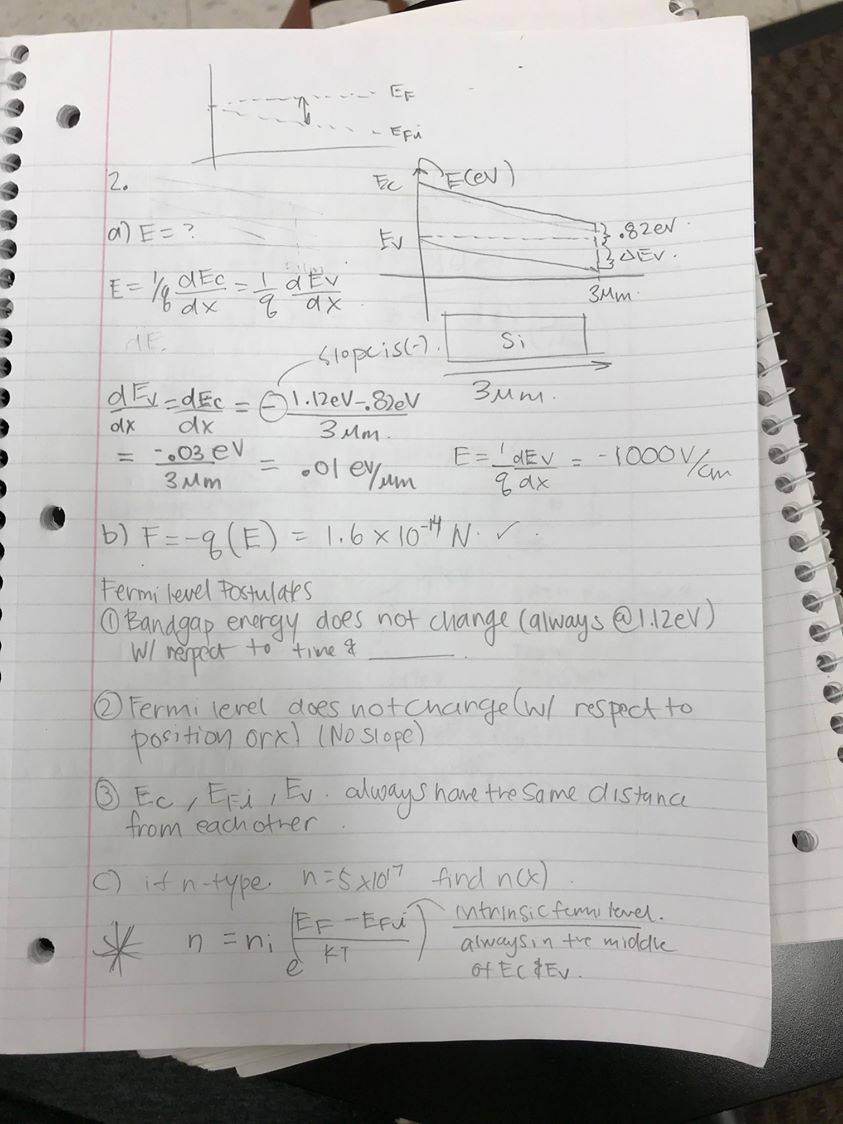 EF
EFi
2.
Ec E(eV)
a) E = ?
Ev
.82eV
ΔEv.
3μm.
E = 1/q dEc/dx = 1/q dEv/dx
dE.
Si
slope is (-).
3μm.
dEv/dx = dEc/dx = - (1.12eV - .82eV)/3μm.
= -.03 eV/3μm = .01 eV/μm E = 1/q dEv/dx = -1000 V/cm
b) F = -q(E) = 1.6 × 10^-14 N. ✓.
Fermi level Postulates
① Bandgap energy does not change (always @ 1.12eV)
w/ respect to time & ______.
② Fermi level does not change (w/ respect to
position or x) (No slope)
③ Ec, EFi, Ev. always have the same distance
from each other.
c) if n-type. n = 5×10^17 find n(x).
* n = ni e^((EF - EFi)/KT) intrinsic fermi level.
always in the middle
of Ec & Ev.